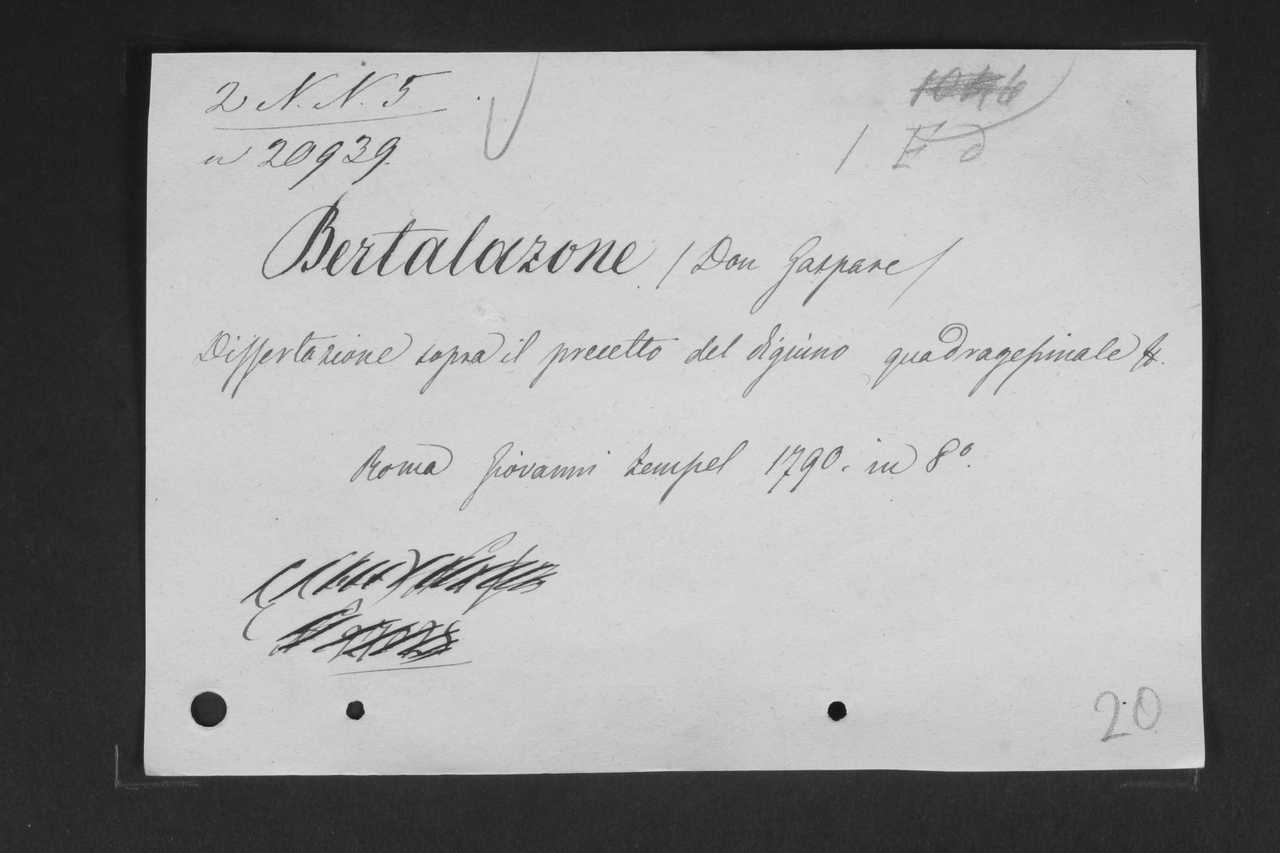 2 N. N. 5
n 20939.
1 F d
Bertalazone (Don Gaspare)
Dissertazione sopra il precetto del digiuno quadragesimale &.
Roma Giovanni Zempel 1790. in 8º.
20